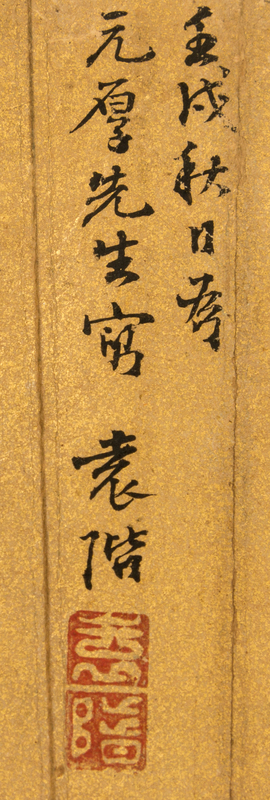 壬戌秋日為
元厚先生寫 袁階
袁階